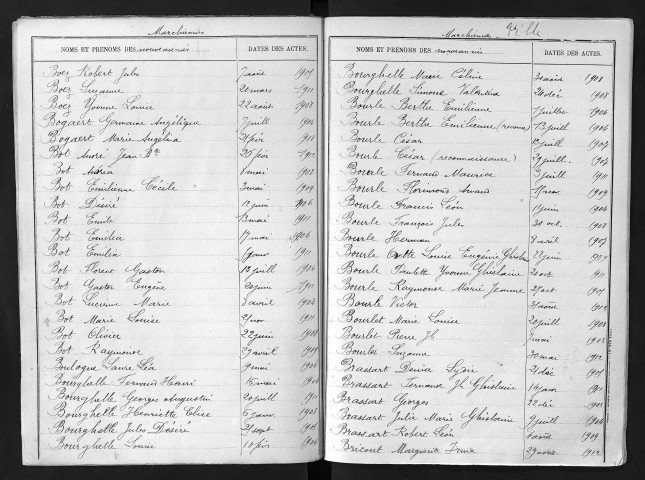 Marchiennes
NOMS ET PRÉNOMS DES nouveaunés
DATES DES ACTES.
Boez Robert Jules 7 août
Boez Suzanne 20 mars 1911
Boez Yvonne Louise 22 août 1908
Bogaërt Germaine Angélique 7 juill 1904
Bogaërt Marie Angélina 21 fév
Bot André Jean Bte 20 fév 1902
Bot Andréa 1 mai 1908
Bot Emilienne Cécile 3 mai 1909
Bot Désiré 10 juin 1906
Bot Emile 13 mai 1911
Bot Emilia 17 mai 1906
Bot Emilia 1911
Bot Florent Gaston 13 juill 1904
Bot Gaston Eugène 20 juin 1911
Bot Lucienne Marie 8 avril 1904
Bot Marie Louise 1911
Bot Olivier 22 juin 1908
Bot Raymonde 29 avril
Boulogne Laure Léa 9 mai 1906
Bourghelle Fernand Henri 16 mai
Bourghelle Georges Augustin 20 juill 1910
Bourghelle Henriette Elise 6 janv 1903
Bourghelle Jules Désiré 21 sept
Bourghelle Louise 10 fév
Marchiennes Ville
NOMS ET PRÉNOMS DES nouveaunés
DATES DES ACTES.
Bourghelle Marie Céline 30 août 1908
Bourghelle Simone Valentine 24 déc 1908
Bourle Berthe Emilienne 1 juillet 1904
Bourle Berthe Emilienne (reconn) 13 juill 1904
Bourle César juill 1907
Bourle César (reconnaissance) 29 juill 1907
Bourle Fernand Maurice 3 juill 1911
Bourle 1909
Bourle Francis Léon 1 juin 1904
Bourle François Jules 30 oct 1908
Bourle Herman 8 avril 1907
Bourle Louise Eugénie Ghislaine 22 juin
Bourle Paulette Yvonne Ghislaine 2 oct 1911
Bourle Raymonde Marie Jeanne 27 oct 1901
Bourle Victor 31 août 1912
Bourlet Marie Louise 20 juill 1908
Bourlet Pierre Jh mai
Bourlet Suzanne 30 mai 1912
Brassart Denise Lydie 21 déc 1907
Brassart Fernand Jh Ghislain 14 janv
Brassart Georges 22 déc
Brassart Julie Marie Ghislaine 7 juill 1904
Brassart Robert Léon 1 août 1909
Bricout Marguerite Irma 29 août 1912